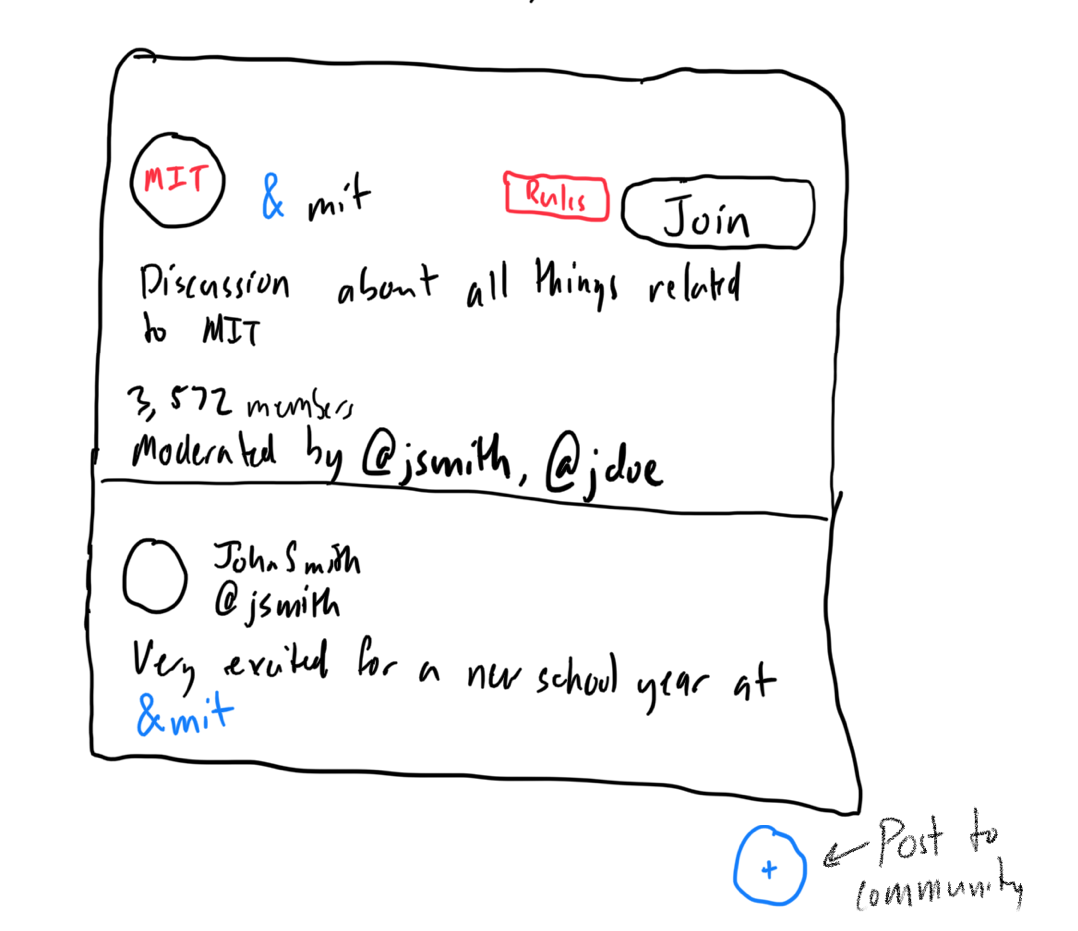 MIT
& mit
Rules
Join
Discussion about all things related
to MIT
3,572 members
Moderated by @jsmith, @jdoe
John Smith
@jsmith
Very excited for a new school year at
&mit
+
Post to
community